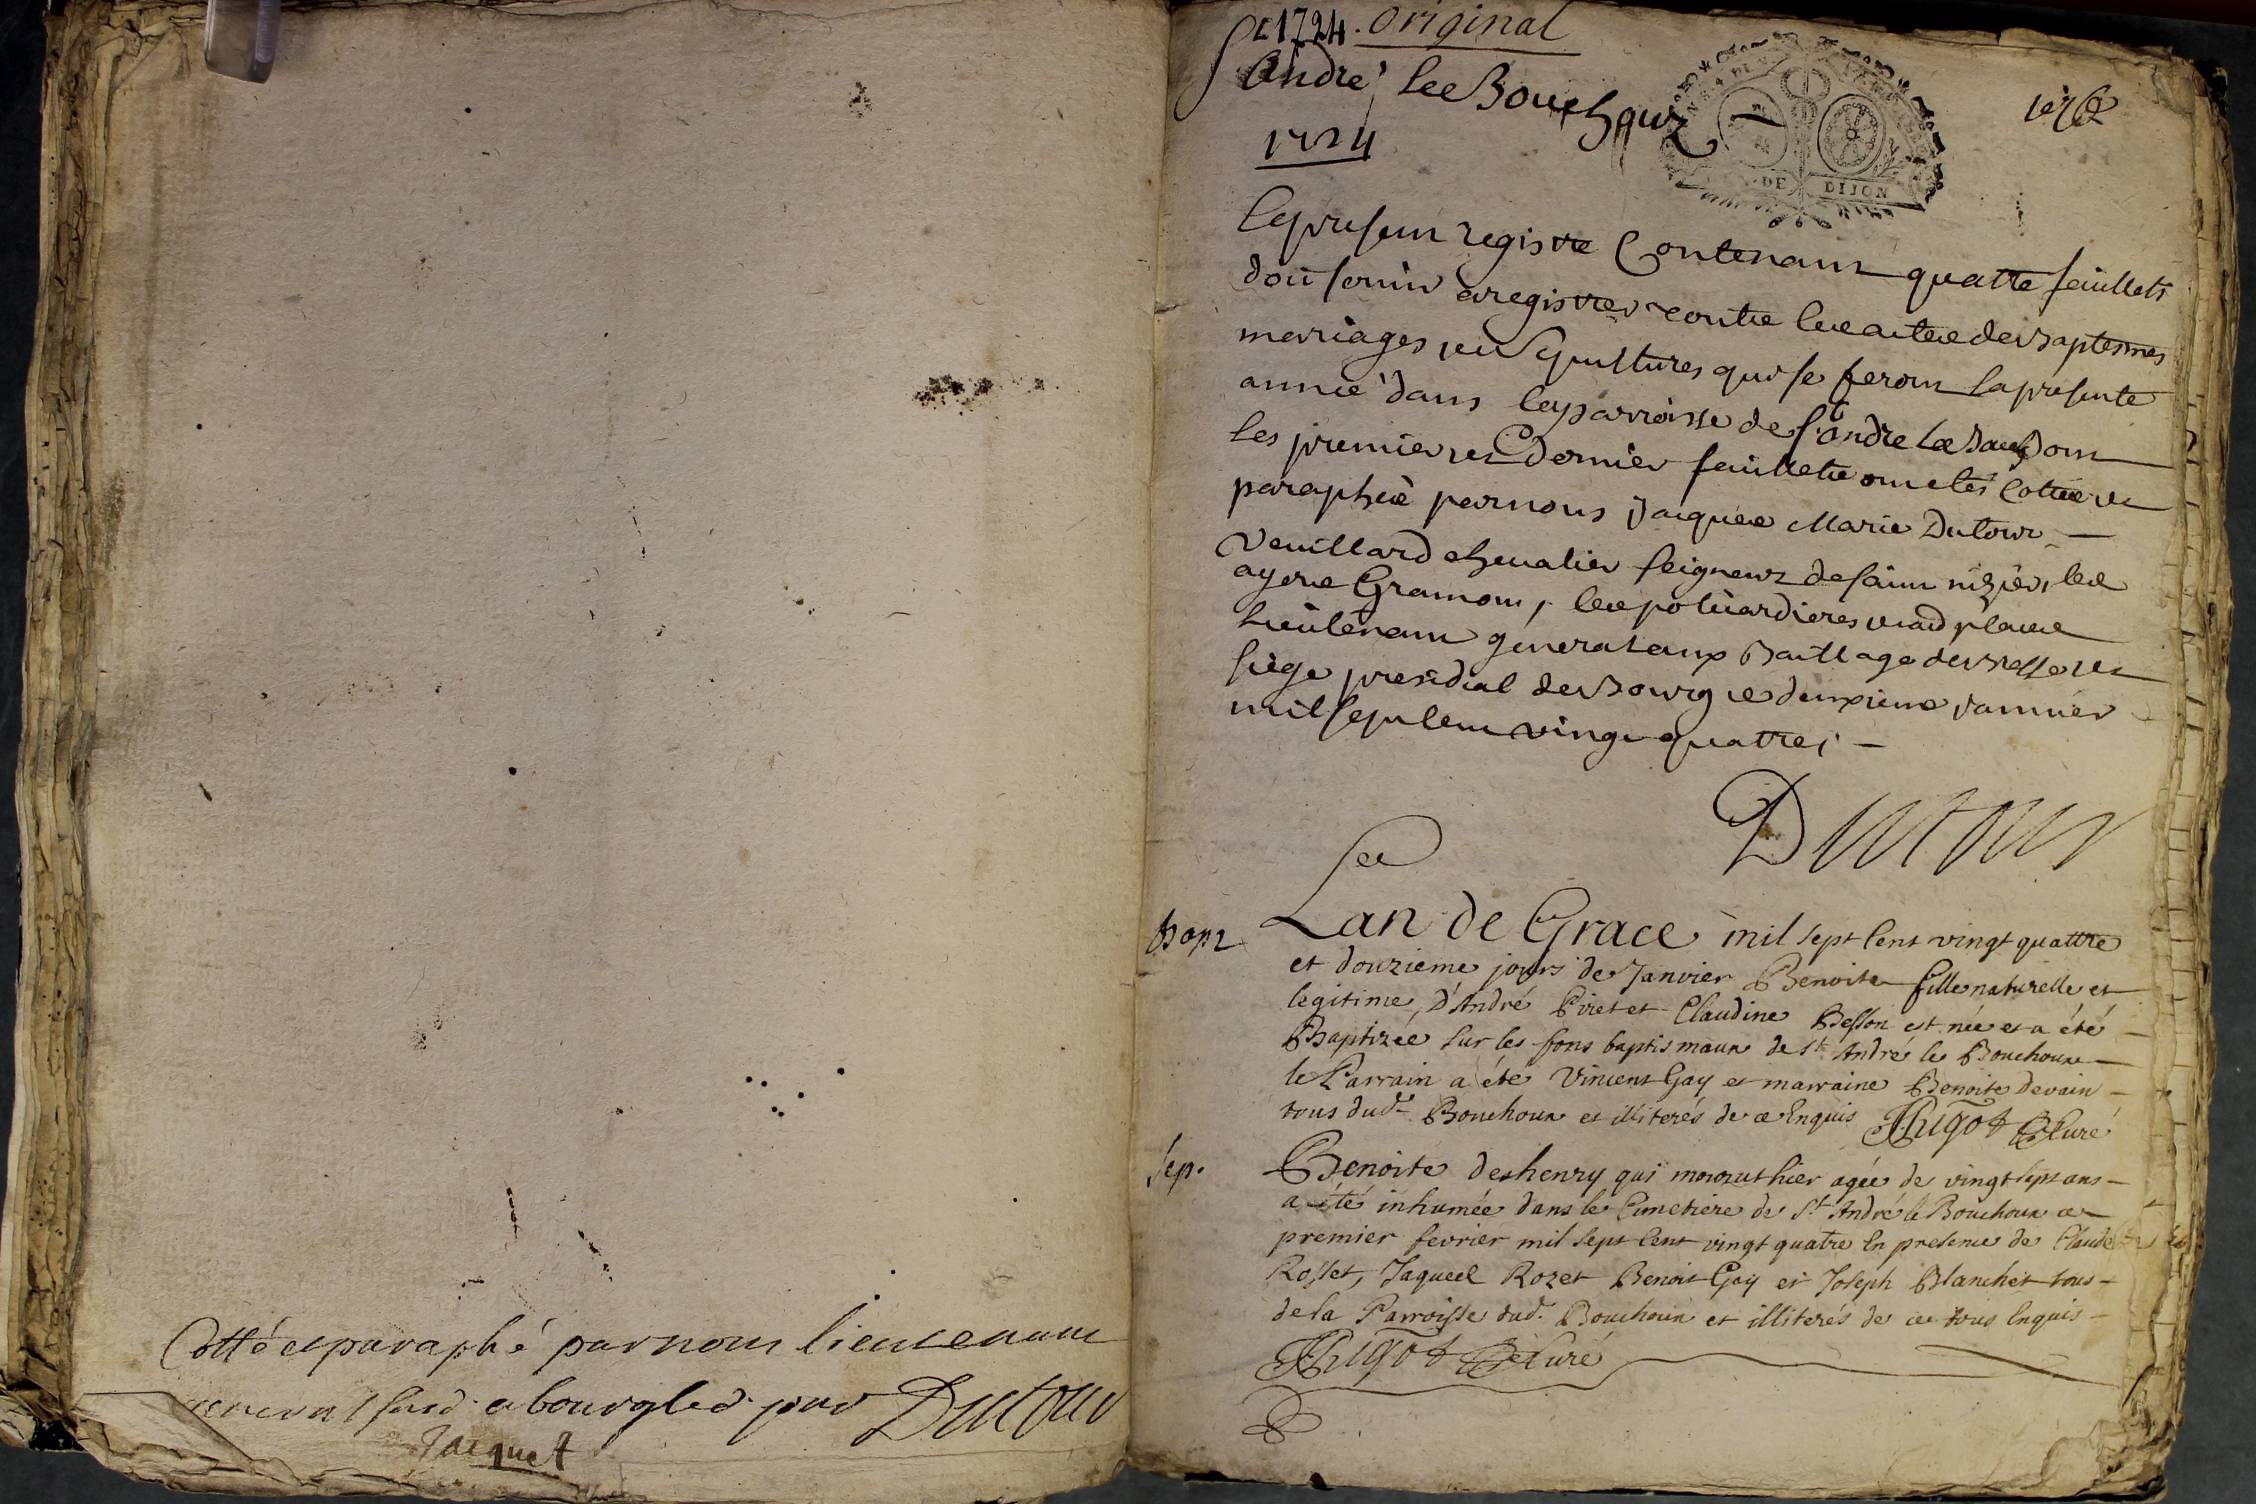 Cotté et paraphé par nous lieutenant
general susd. a bourg led. jour Dutour
Jacquet
1724. original
St André les Bouchoux
1724
DE DIJON
1er f
Le present registre Contenant quatre feuillets
doit servir a registrer contre les actes des Baptesmes
mariages et Sepultures qui se feront la presente
année dans la parroisse de St André les Bouch dont
les premier et Dernier feuillets ont etés Cottés et
paraphés par nous Jacques Marie Dutour
Veuillard chevalier seigneur de saint nizier, les
Gramont, les poliardieres et
lieutenant general aux Baillage de Bresse et
siege presidial de Bourg ce deuxieme Janvier
mil sept cent vingt quatre, —
Dutour
Bapt
Lan de Grace mil sept Cent vingt quattre
et douzieme jours de Janvier Benoite fille naturelle et
legitime, D'André Piret et Claudine Besson est née et a été
Baptizée sur les fons baptismaux de St André les Bouchoux
le Parrain a été Vincent Gay et marraine Benoite Devain
tous dud. Bouchoux et illiterés de ce Enquis Hugot Curé
Sep.
Benoite deshenry qui mourut hier agée de vingt sept ans
a été inhumée dans le Cimetiere de St André le Bouchoux ce
premier fevrier mil sept Cent vingt quatre En presence de Claude
Rosset, Jaques Rozet Benoit Gay et Joseph Blanchet tous
de la Parroisse dud. Bouchoux et illiterés de ce tous Enquis
Hugot Curé